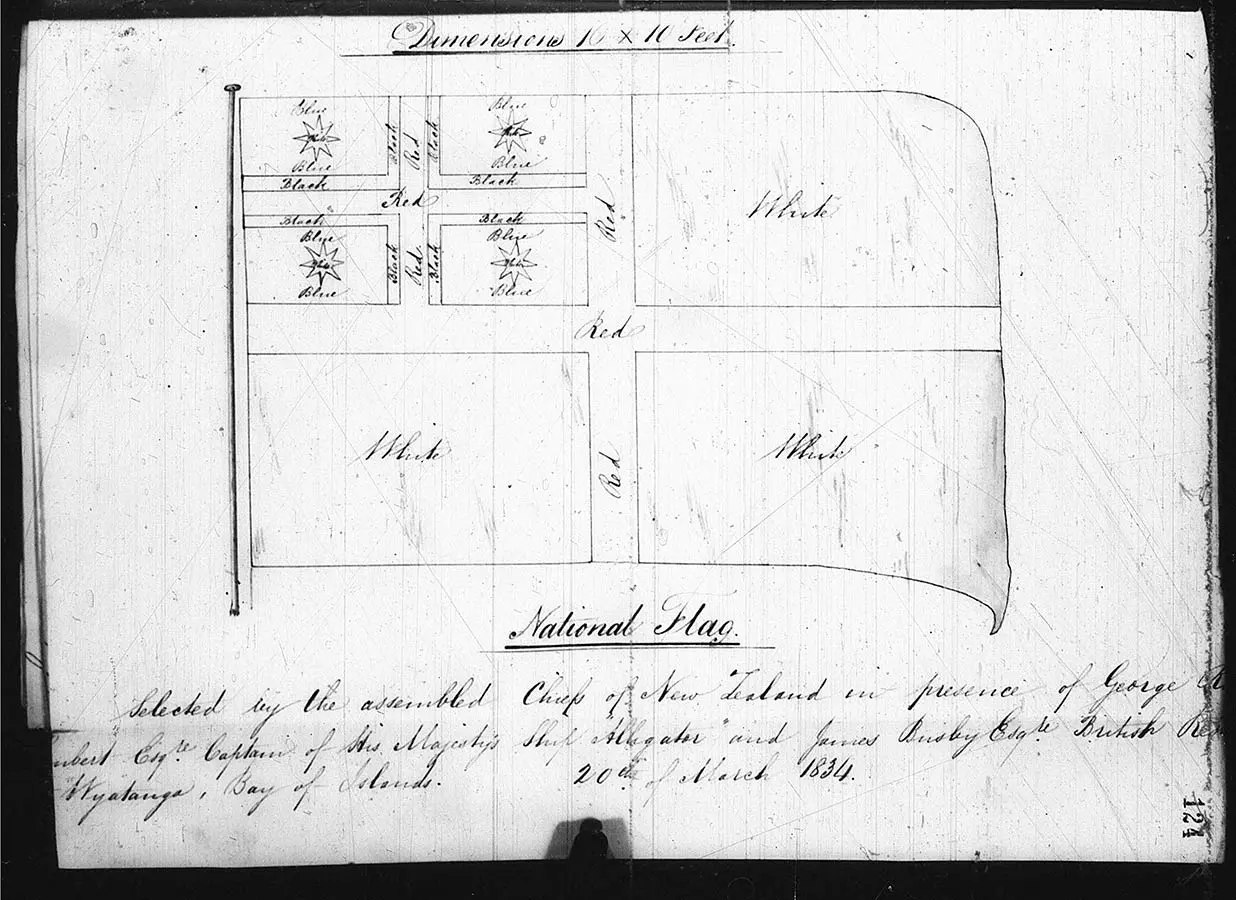 Dimensions 16 x 10 Feet.
Blue Blue
White White
Blue Blue
Black Red Black
Black Black
Red
Red
White
Black Black
Blue Blue
White White
Blue Blue
Black Red Black
Red
White
Red
White
National Flag.
Selected by the assembled Chiefs of New Zealand in presence of George R
mbert Esqre. Captain of His Majesty's Ship "Alligator" and James Busby Esqre British Resi
"Wyatanga, Bay of Islands. 20th of March 1834.
124